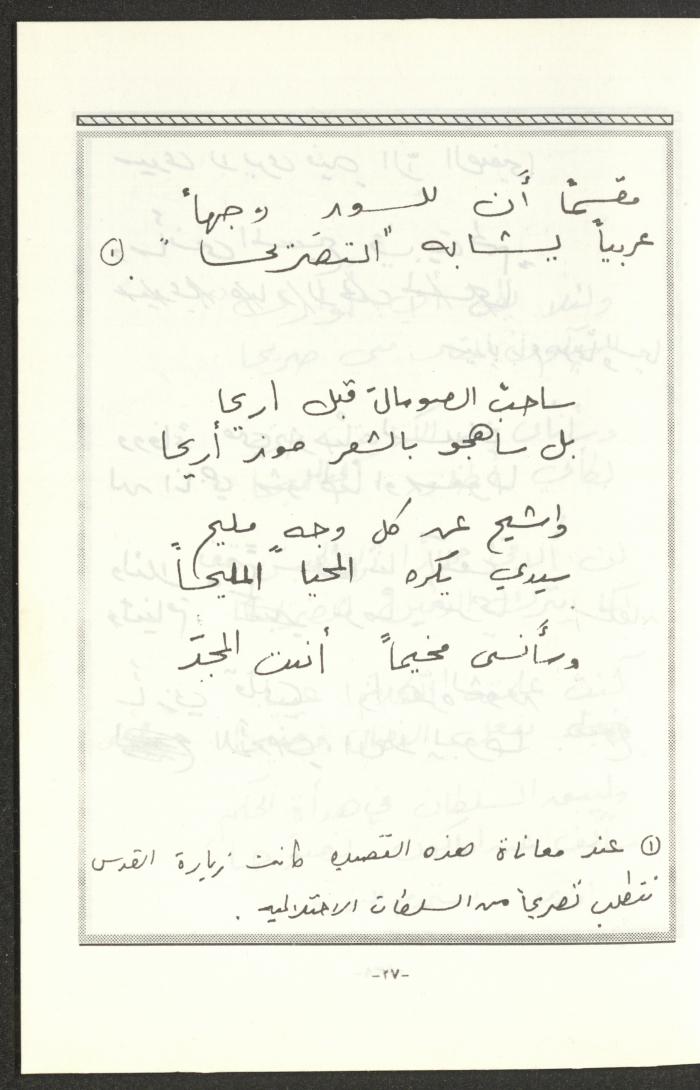 مقسماً أن للسود وجهاً
عربياً يشابه "التصريحا" . ①
ساحت الصومال قبل اريحا
بل ساهجو بالشعر موز أريحا
واشيح عن كل وجه مليح
سيدي يكره المحيا المليحاً
وسأنسى مخيماً أنبت المجدَ
① عند معاناة هذه القصيدة كانت زيارة القدس
تتطلب تصريحاً من السلطات الاحتلالية .
-٢٧-